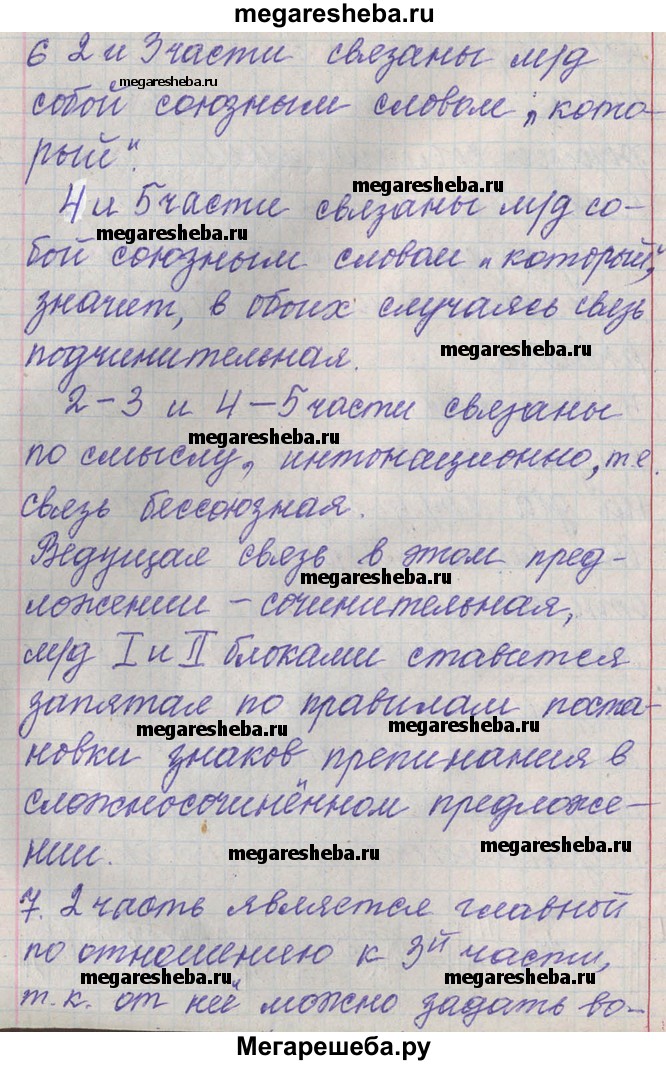 megaresheba.ru
6 2 и 3 части связаны м/д
megaresheba.ru
собой союзным словом „кото-
рый".
4 и 5 части связаны м/д со-
megaresheba.ru
megaresheba.ru
бой союзным словом „который",
значит, в обоих случаясь связь
подчинительная.
megaresheba.ru
2-3 и 4-5 части связаны
megaresheba.ru
по смыслу, интонационно, т.е.
связь бессоюзная.
Ведущая связь в этом пред-
megaresheba.ru
ложении - сочинительная,
м/д I и II блоками ставится
запятая по правилам поста-
megaresheba.ru
megaresheba.ru
новки знаков препинания в
сложносочинённом предложе-
нии.
megaresheba.ru
7. 2 часть является главной
по отношению к 3й части,
megaresheba.ru
megaresheba.ru
т.к. от неё можно задать во-
Мегарешеба.ру